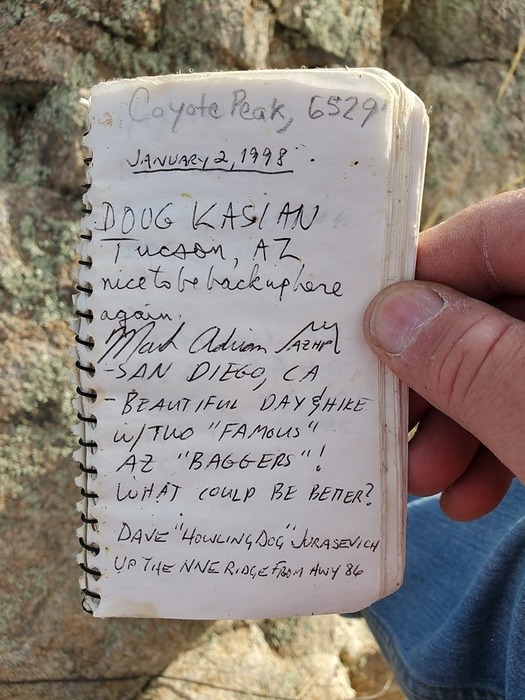 Coyote Peak, 6529'
JANUARY 2, 1998
DOUG KASIAN
Tucson, AZ
nice to be back up here
again.
Mark Adrian AZHP
-SAN DIEGO, CA
-BEAUTIFUL DAY & HIKE
W/TWO "FAMOUS"
AZ "BAGGERS"!
WHAT COULD BE BETTER?
DAVE "HOWLING DOG" JURASEVICH
UP THE NNE RIDGE FROM HWY 86